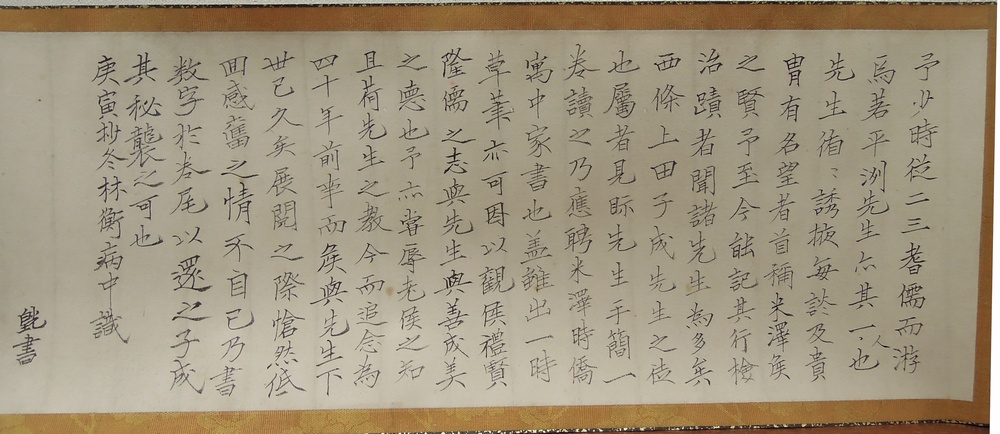 予少時從二三耆儒而游
焉若平洌先生亦其一人也
先生循〻誘掖每談及貴
冑有名望者首稱米澤矦
之賢予至今能記其行檢
治蹟者聞諸先生為多矣
西條上田子成先生之徒
也屬者見眎先生手簡一
卷讀之乃應聘米澤時僑
寓中家書也蓋雖出一時
草藁亦可因以觀矦禮賢
隆儒之志與先生與善成美
之悳也予亦嘗辱老矦之知
且荷先生之教今而追念為
四十年前事而矦與先生下
世已久矣展閱之際愴然低
回感舊之情不自已乃書
数字於卷尾以還之子成
其秘襲之可也
庚寅抄冬林衡病中識
書